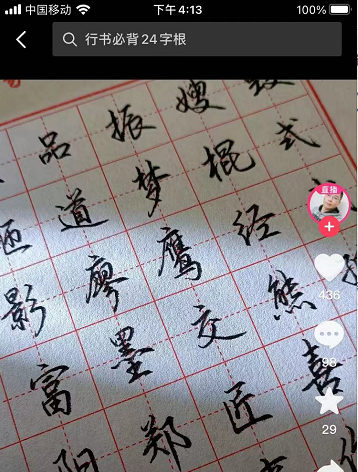 中国移动 下午4:13 100%
行书必背24字根
品 振 嫂
道 梦 棍 式
影 廖 鹰 经
富 墨 交 熊
郑 匠 喜
直播
436
98
29